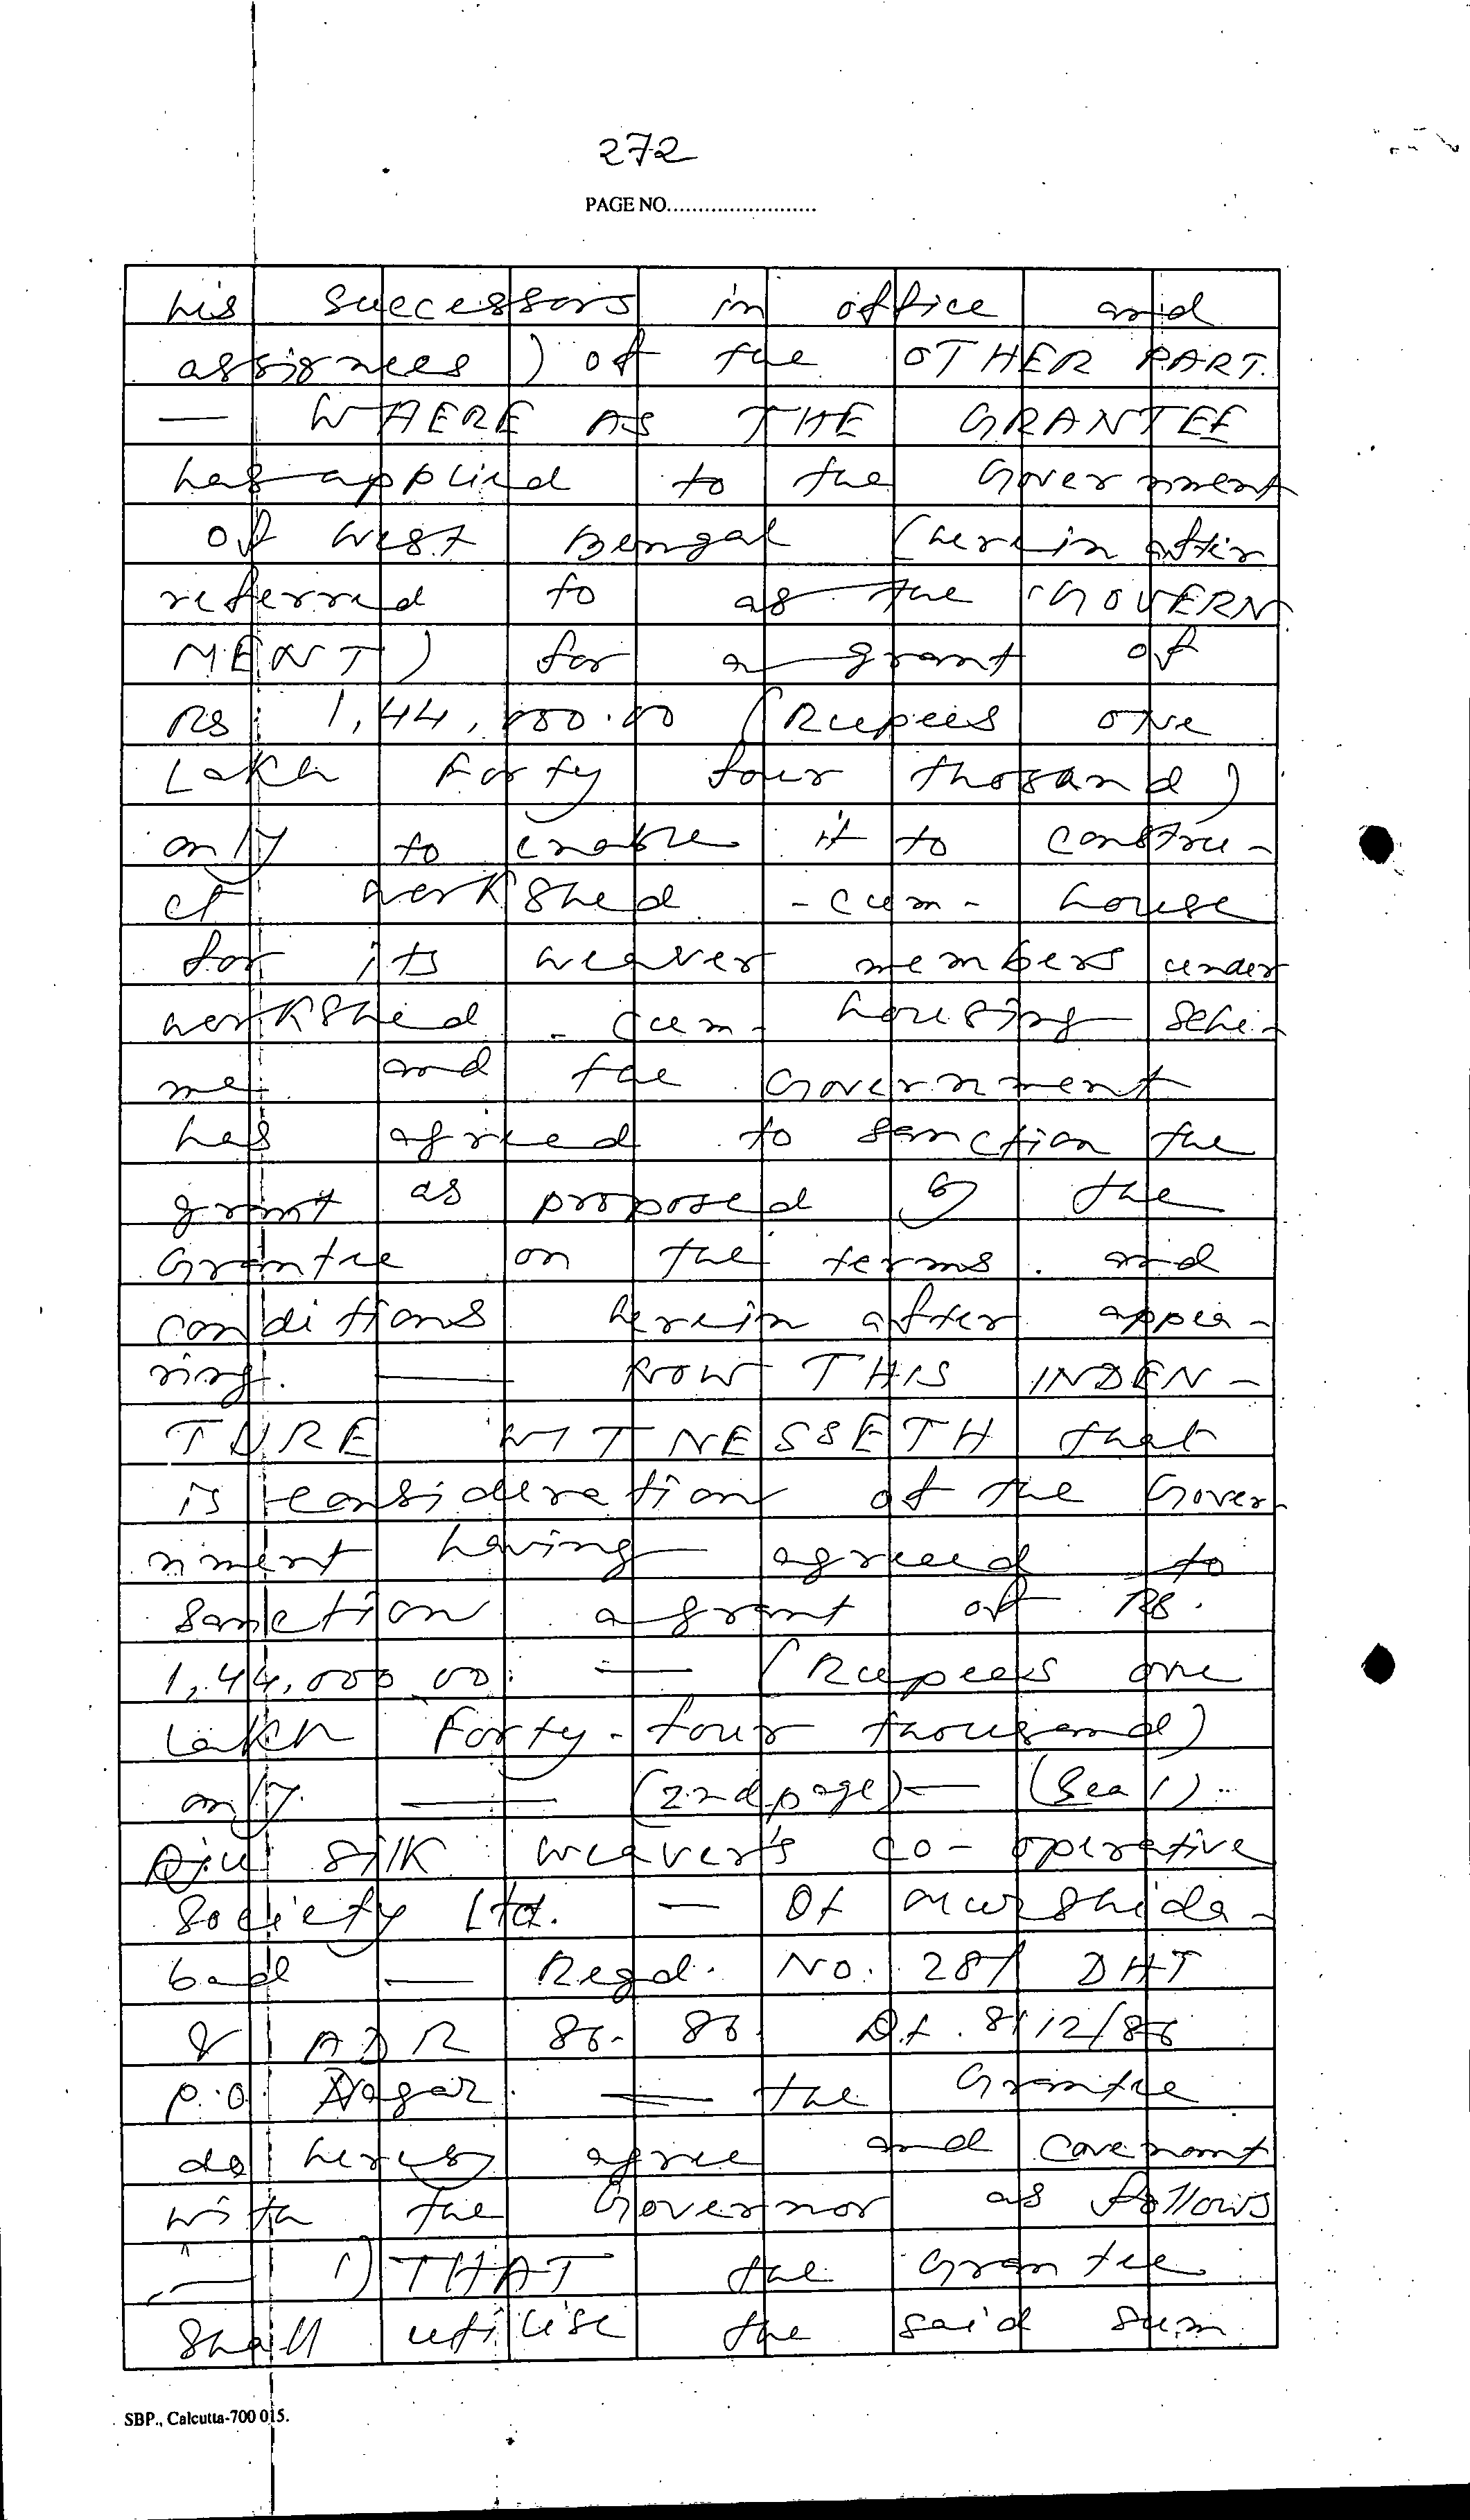 272
PAGE NO........................
his successors in office and
assignees) of the OTHER PART.
— WHERE AS THE GRANTEE
has applied to the Government
of West Bengal (herein after
referred to as the 'GOVERN
MENT) for a grant of
Rs. 1,44,000.00 (Rupees one
Lakh Forty four thosand)
only to enable it to constru-
ct workshed - cum - house
for its weaver members under
workshed - cum - housing sche-
me and the Government
has agreed to sanction the
grant as proposed by the
Grantee on the terms and
conditions herein after appea-
ring. — NOW THIS INDEN-
TURE WITNESSETH that
is consideration of the Gover-
nment having agreed to
sanction a grant of Rs.
1,44,000.00. — (Rupees one
Lakh Forty-four thousand)
only. — (2nd page) — (Seal)..
Silk weaver's co-operative
Society Ltd. — Of Murshida-
bad — Regd. No. 28/ DHT
& ADR 86- 86. Dt. 8/12/86
P.O. Nagar. — the Grantee
do hereby agree and covenant
with the Governor as follows
:— 1) THAT the Grantee
shall utilise the said sum
SBP., Calcutta-700 015.